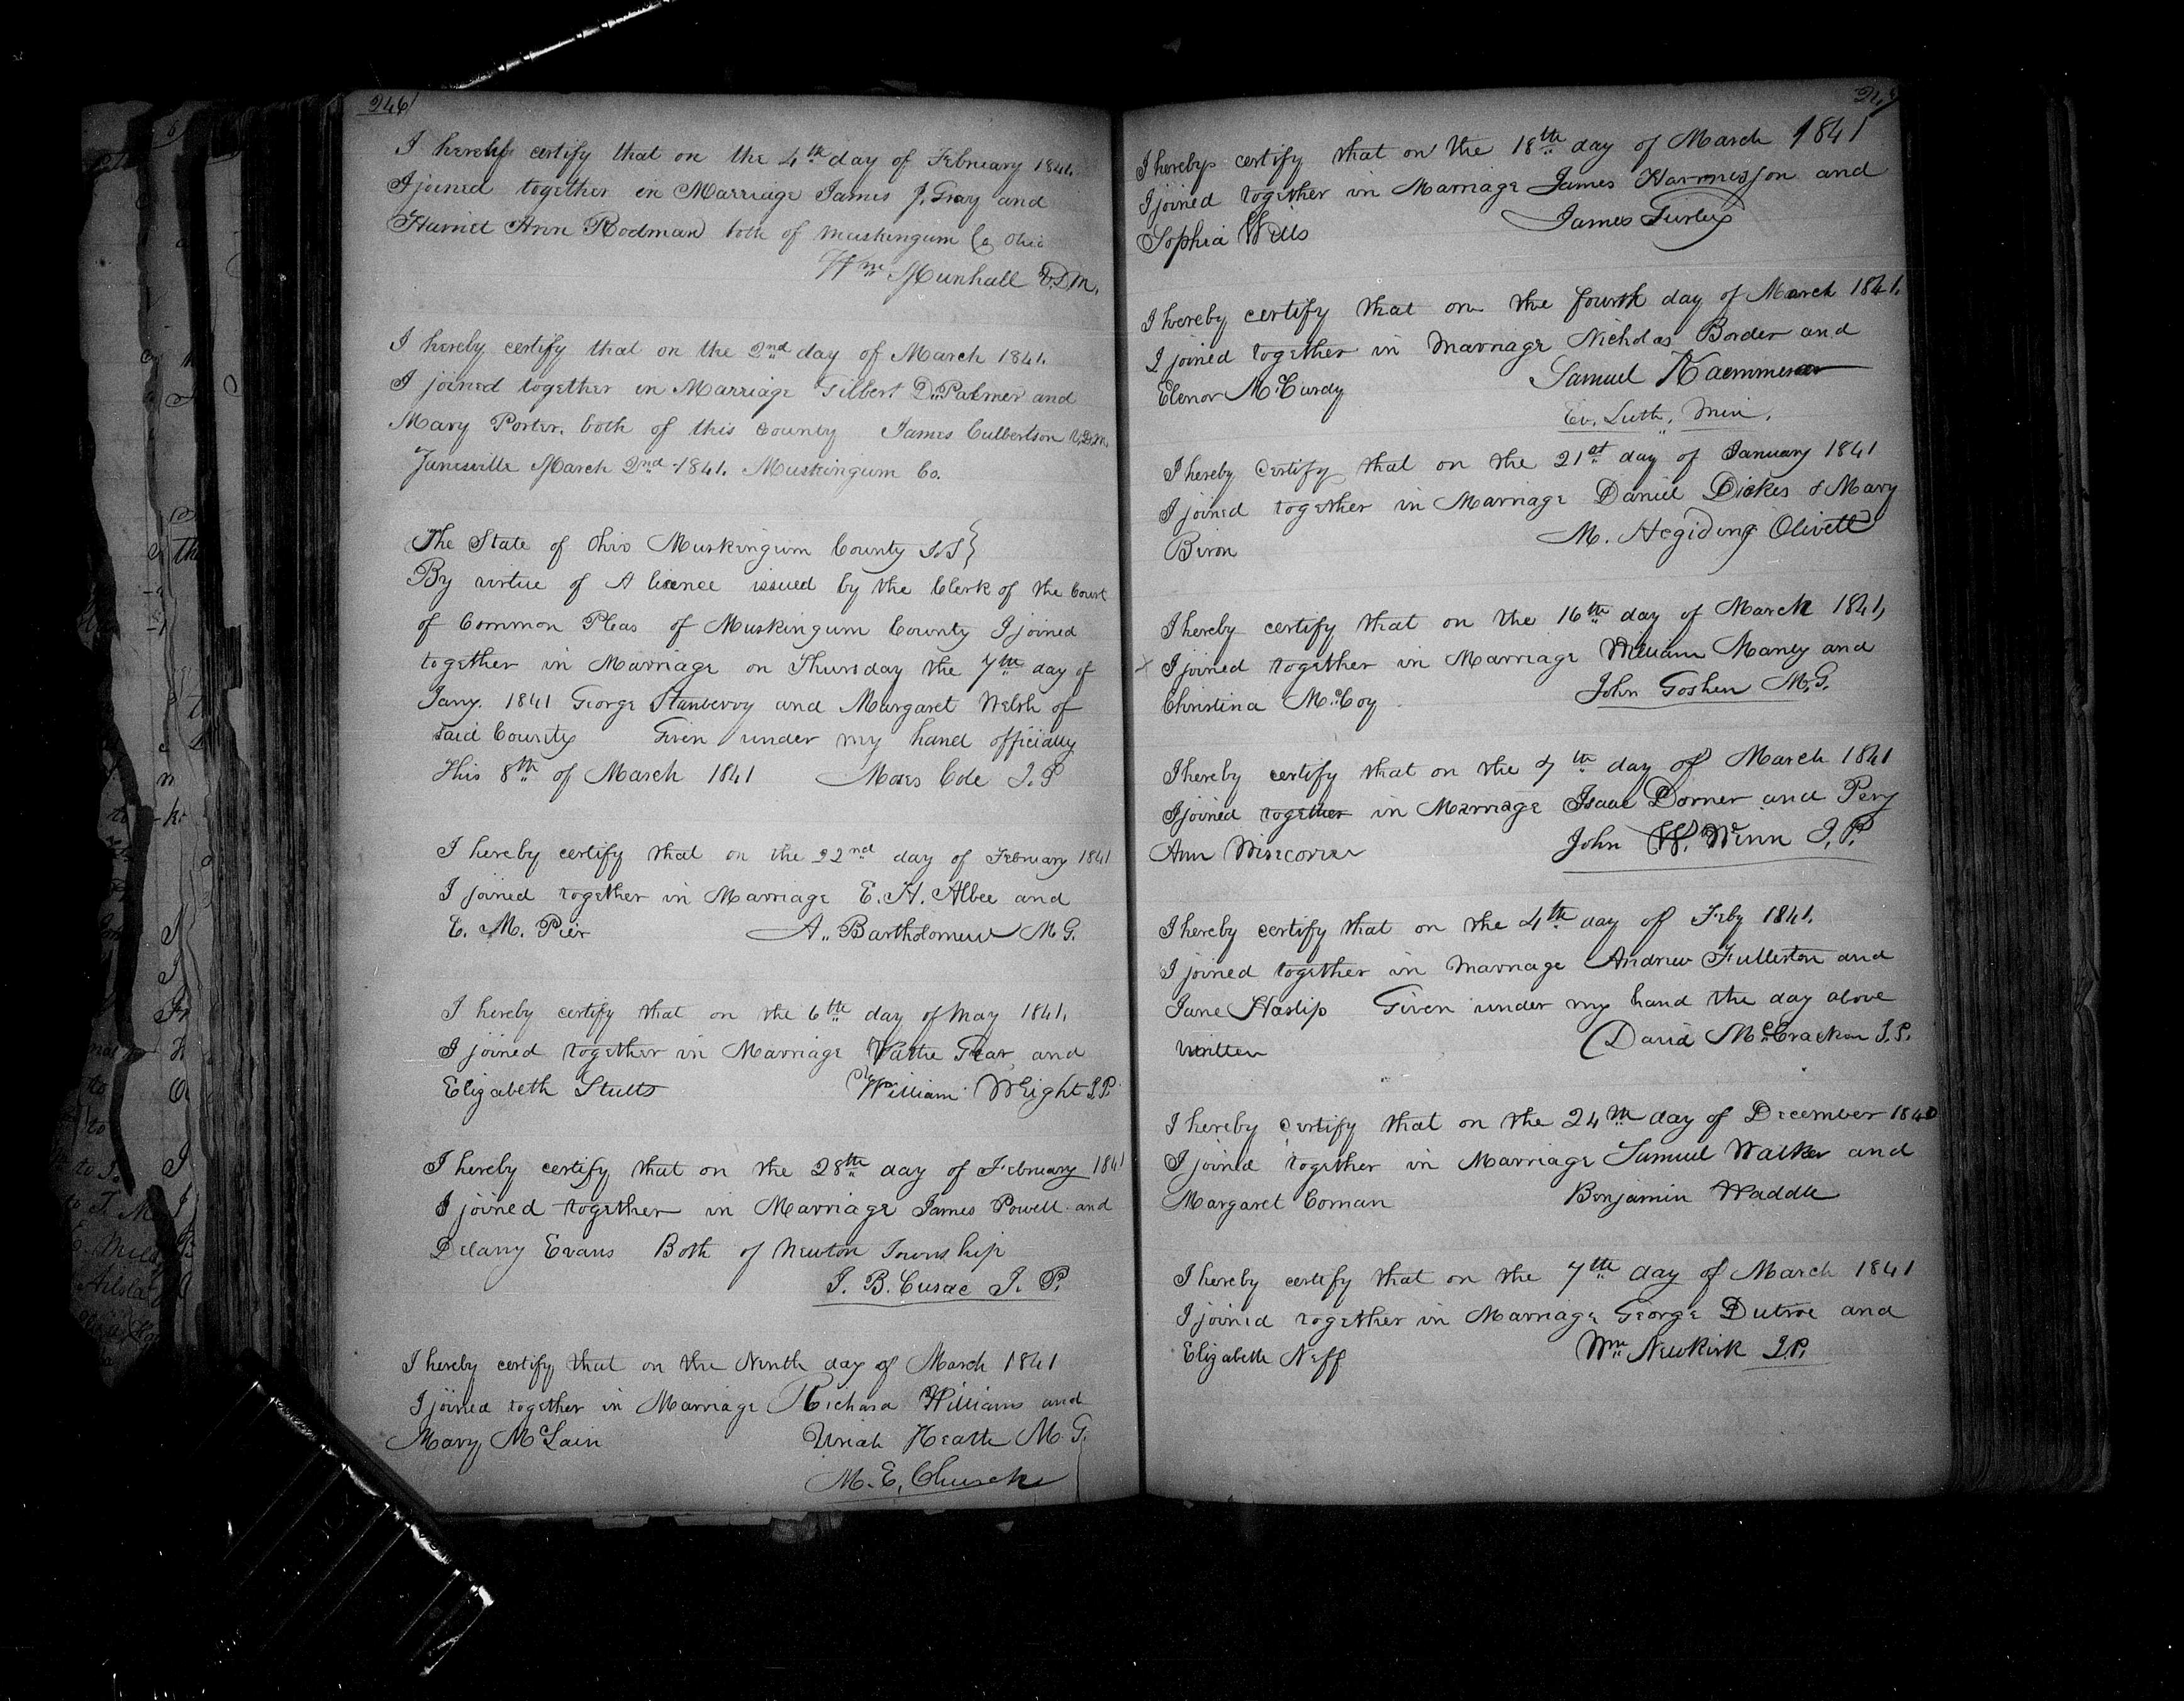 246
I hereby certify that on the 4th day of February 1841.
I joined together in Marriage James J. Gray and
Harriet Ann Rodman both of Muskingum Co Ohio
Wm Munhall V.D.M.
I hereby certify that on the 2nd day of March 1841.
I joined together in Marriage Gilbert D. Palmer and
Mary Porter. both of this County James Culbertson V.D.M.
Zanesville March 2nd 1841. Muskingum Co.
The State of Ohio Muskingum County SS}
By virtue of A licence issued by the Clerk of the Court
of Common Pleas of Muskingum County I joined
together in Marriage on Thursday the 7th day of
Jany. 1841 George Stanberry and Margaret Welsh of
said County Given under my hand officially
This 8th of March 1841 Moses Cole J.P
I hereby certify that on the 22nd day of February 1841
I joined together in Marriage E. H. Albee and
E. M. Pier A. Bartholomew M.G.
I hereby certify that on the 6th day of May 1841.
I joined together in Marriage Gear and
Elizabeth Stults William Wright J.P.
I hereby certify that on the 28th day of February 1841
I joined together in Marriage James Powell and
Delany Evans Both of Newton Township
J. B. Cusac J. P.
I hereby certify that on the Ninth day of March 1841
I joined together in Marriage Richard Williams and
Mary McLain Uriah Heath M.G.
M. E. Church
247
I hereby certify that on the 18th day of March 1841
I joined together in Marriage James Harmesson and
Sophia Wells James Turley
I hereby certify that on the fourth day of March 1841.
I joined together in Marriage Nicholas Border and
Elenor McCurdy Samuel Kaemmerer
Ev. Luth. Min.
I hereby certify that on the 21st day of January 1841
I joined together in Marriage Daniel Dickes & Mary
Biron M. Olivett
I hereby certify that on the 16th day of March 1841,
I joined together in Marriage William Manly and
Christina McCoy John Goshen M.G.
I hereby certify that on the 7th day of March 1841
I joined together in Marriage Isaac Dorner and Pery
Ann John W. Winn J.P.
I hereby certify that on the 4th day of Feby 1841.
I joined together in Marriage Andrew Fullerton and
Jane Haslip Given under my hand the day above
written David McCracken J.P.
I hereby certify that on the 24th day of December 1840
I joined together in Marriage Samuel Walker and
Margaret Coman Benjamin Waddle
I hereby certify that on the 7th day of March 1841
I joined together in Marriage George Dutroe and
Elizabeth Neff Wm Newkirk J.P.